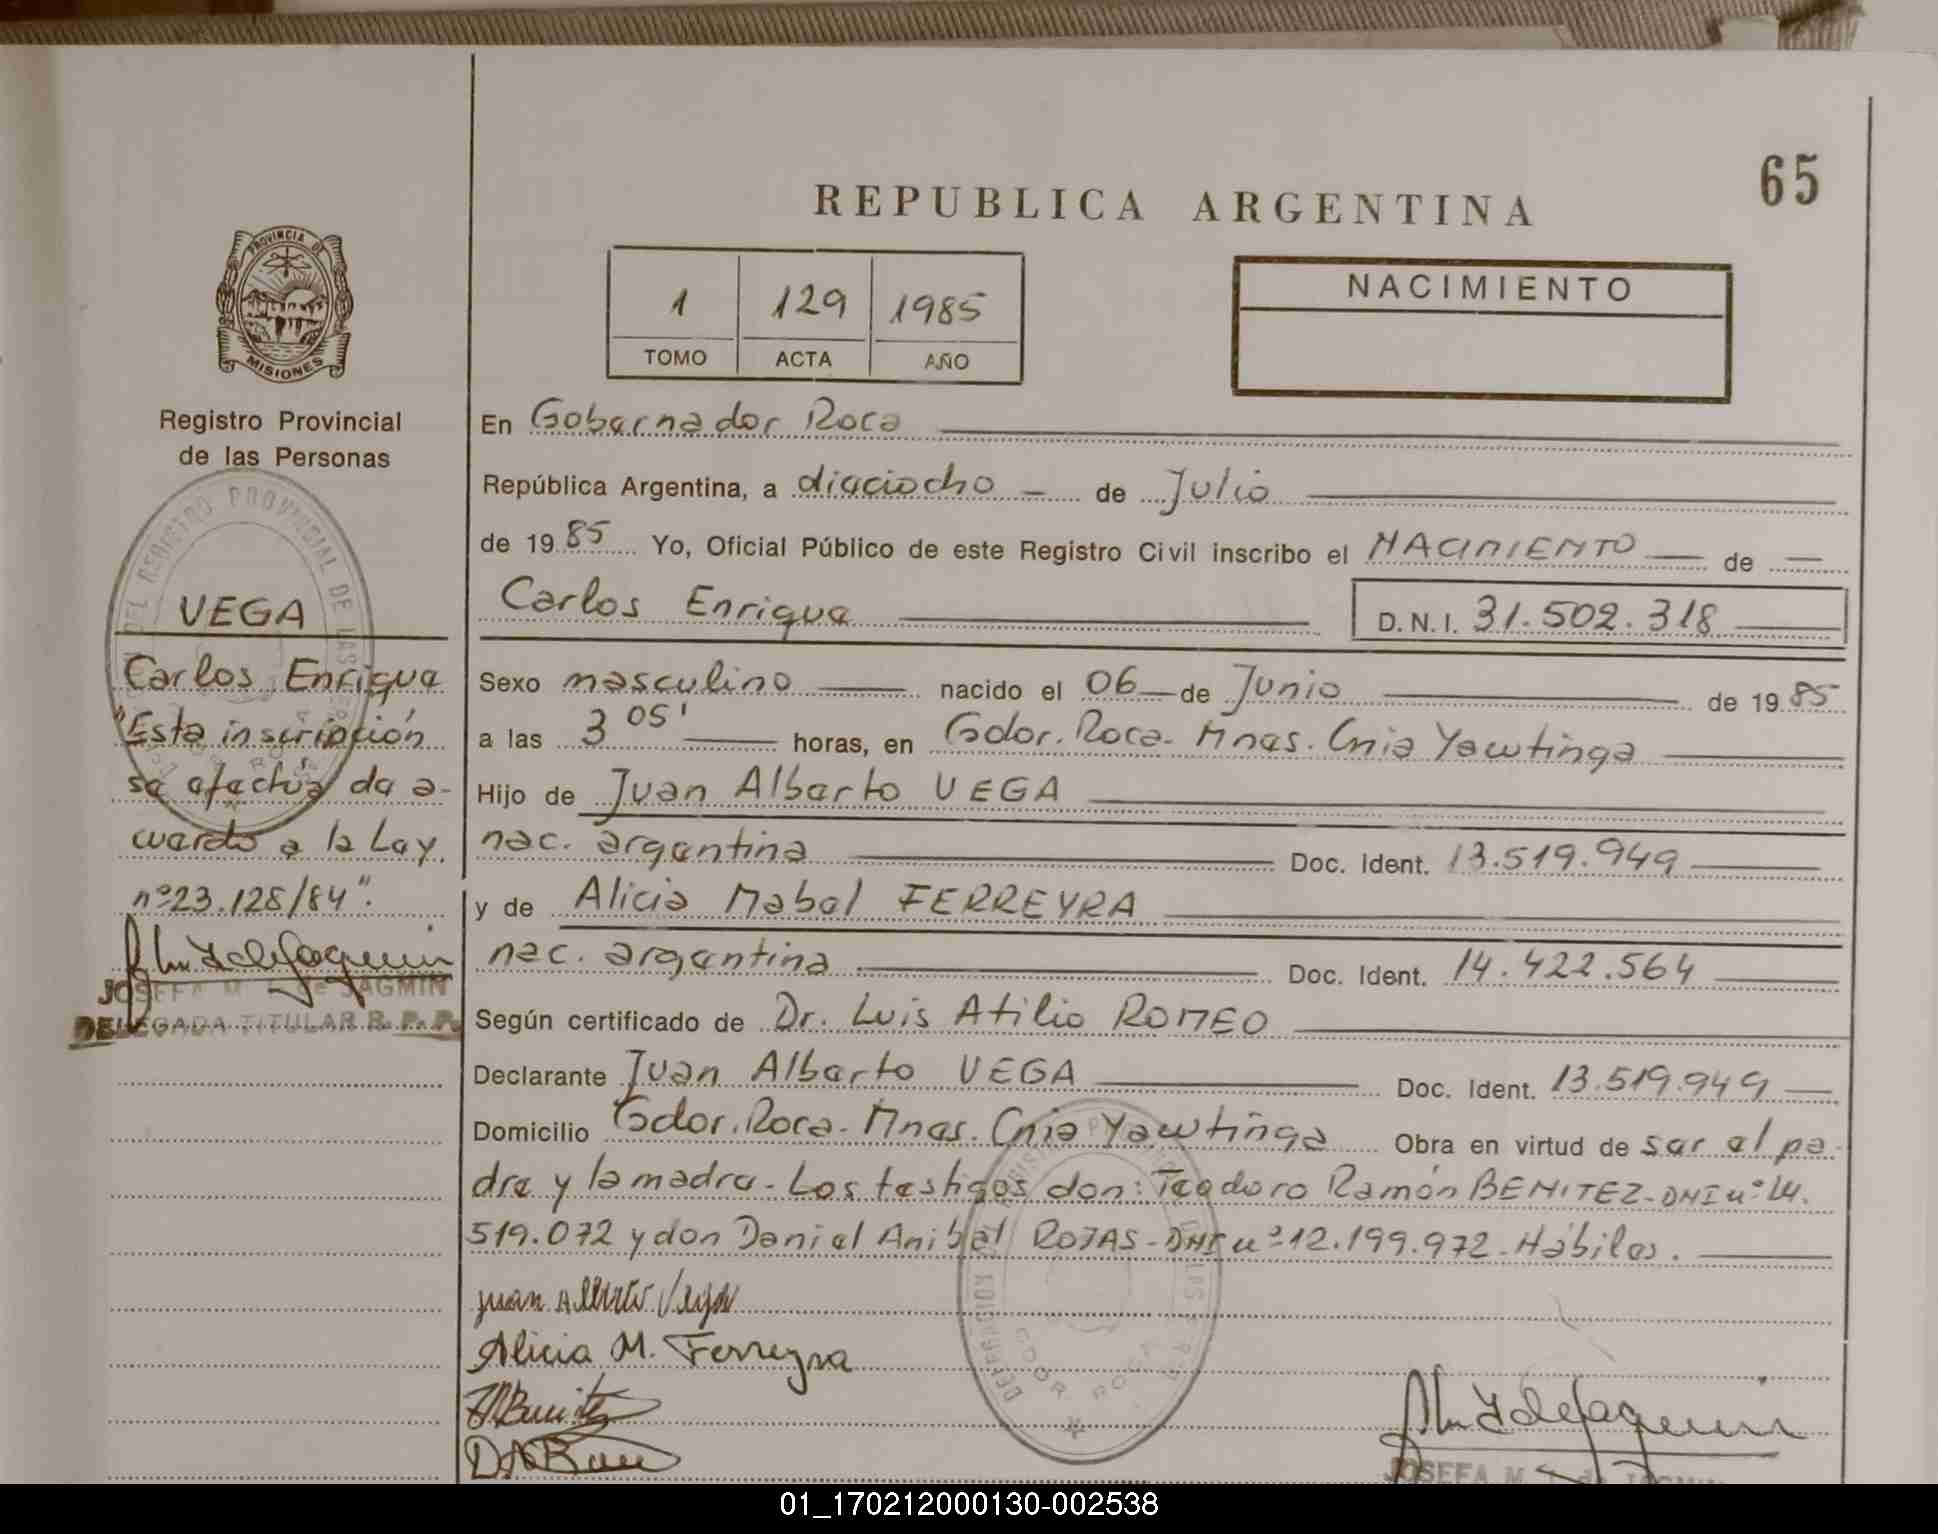 65
REPUBLICA ARGENTINA
PROVINCIA DE
MISIONES
Registro Provincial
de las Personas
1 129 1985
TOMO ACTA AÑO
NACIMIENTO
En Gobernador Roca
República Argentina, a dieciocho — de Julio
de 1985 Yo, Oficial Público de este Registro Civil inscribo el NACIMIENTO — de —
Carlos Enrique D.N.I. 31.502.318
Sexo masculino — nacido el 06 — de Junio de 1985
a las 3 05' horas, en Gdor. Roca - Mnes. Cnia Yawtinga
Hijo de Juan Alberto VEGA
nac. argentina Doc. Ident. 13.519.949
y de Alicia Mabel FERREYRA
nac. argentina Doc. Ident. 14.422.564
Según certificado de Dr. Luis Atilio ROMEO
Declarante Juan Alberto VEGA Doc. Ident. 13.519.949
Domicilio Gdor. Roca - Mnes. Cnia Yawtinga Obra en virtud de ser el pa-
dre y la madre. Los testigos don: Teodoro Ramón BENITEZ - DNI nº 14.
519.072 y don Daniel Anibal ROJAS - DNI nº 12.199.972 - Hábiles.
Juan Alberto Vega
Alicia M. Ferreyra
VEGA
Carlos Enrique
"Esta inscripción
se efectúa de a-
cuerdo a la Ley
nº 23.128/84".
JOSEFA M. de JAGMIN
DELEGADA TITULAR R. P. P.
JOSEFA M.
01_170212000130-002538